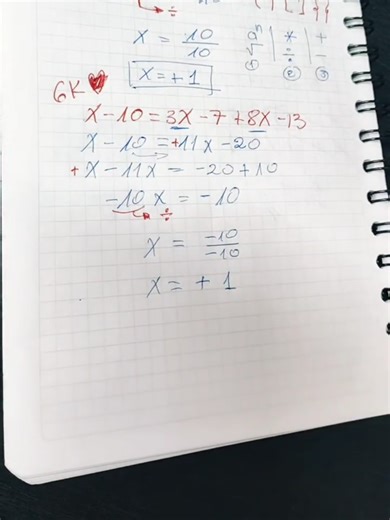 ÷
x = 10/10
x = +1
6K
x - 10 = 3x - 7 + 8x - 13
x - 10 = +11x - 20
+ x - 11x = -20 + 10
-10 x = -10
÷
x = -10/-10
x = + 1